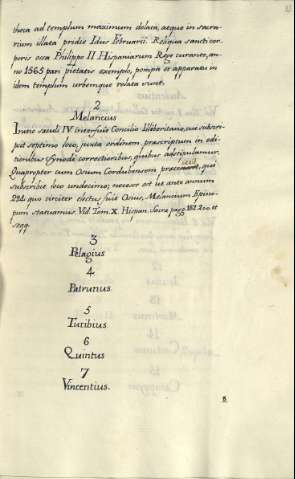 blica ad templum maximum delata, atque in sacra-
rium illata pridie Idus Februarii. Reliqua sancti cor-
poris ossa Philippo II Hispaniarum Rege curante, an-
no 1565 pari pietatis exemplo, pompa et apparatu in
idem templum urbemque relata sunt.
2
Melantius
Initio saeculi IV interfuit Concilio Illiberitano, cui subscri-
psit septimo loco, juxta ordinem praescriptum in edi-
tionibus Synodi correctioribus, quibus adstipulamur.
Quapropter cum Osium Cordubensem praecesserit, qui
subscribit loco undecimo; necesse est ut ante annum
294 quo circiter electus fuit Osius, Melantium Episco-
pum statuamus. Vid. Tom. X. Hispan. Sacra pagg. 162. 200. et
seqq.
3
Pelagius
4
Patrunus
5
Turibius
6
Quintus
7
Vincentius.
8